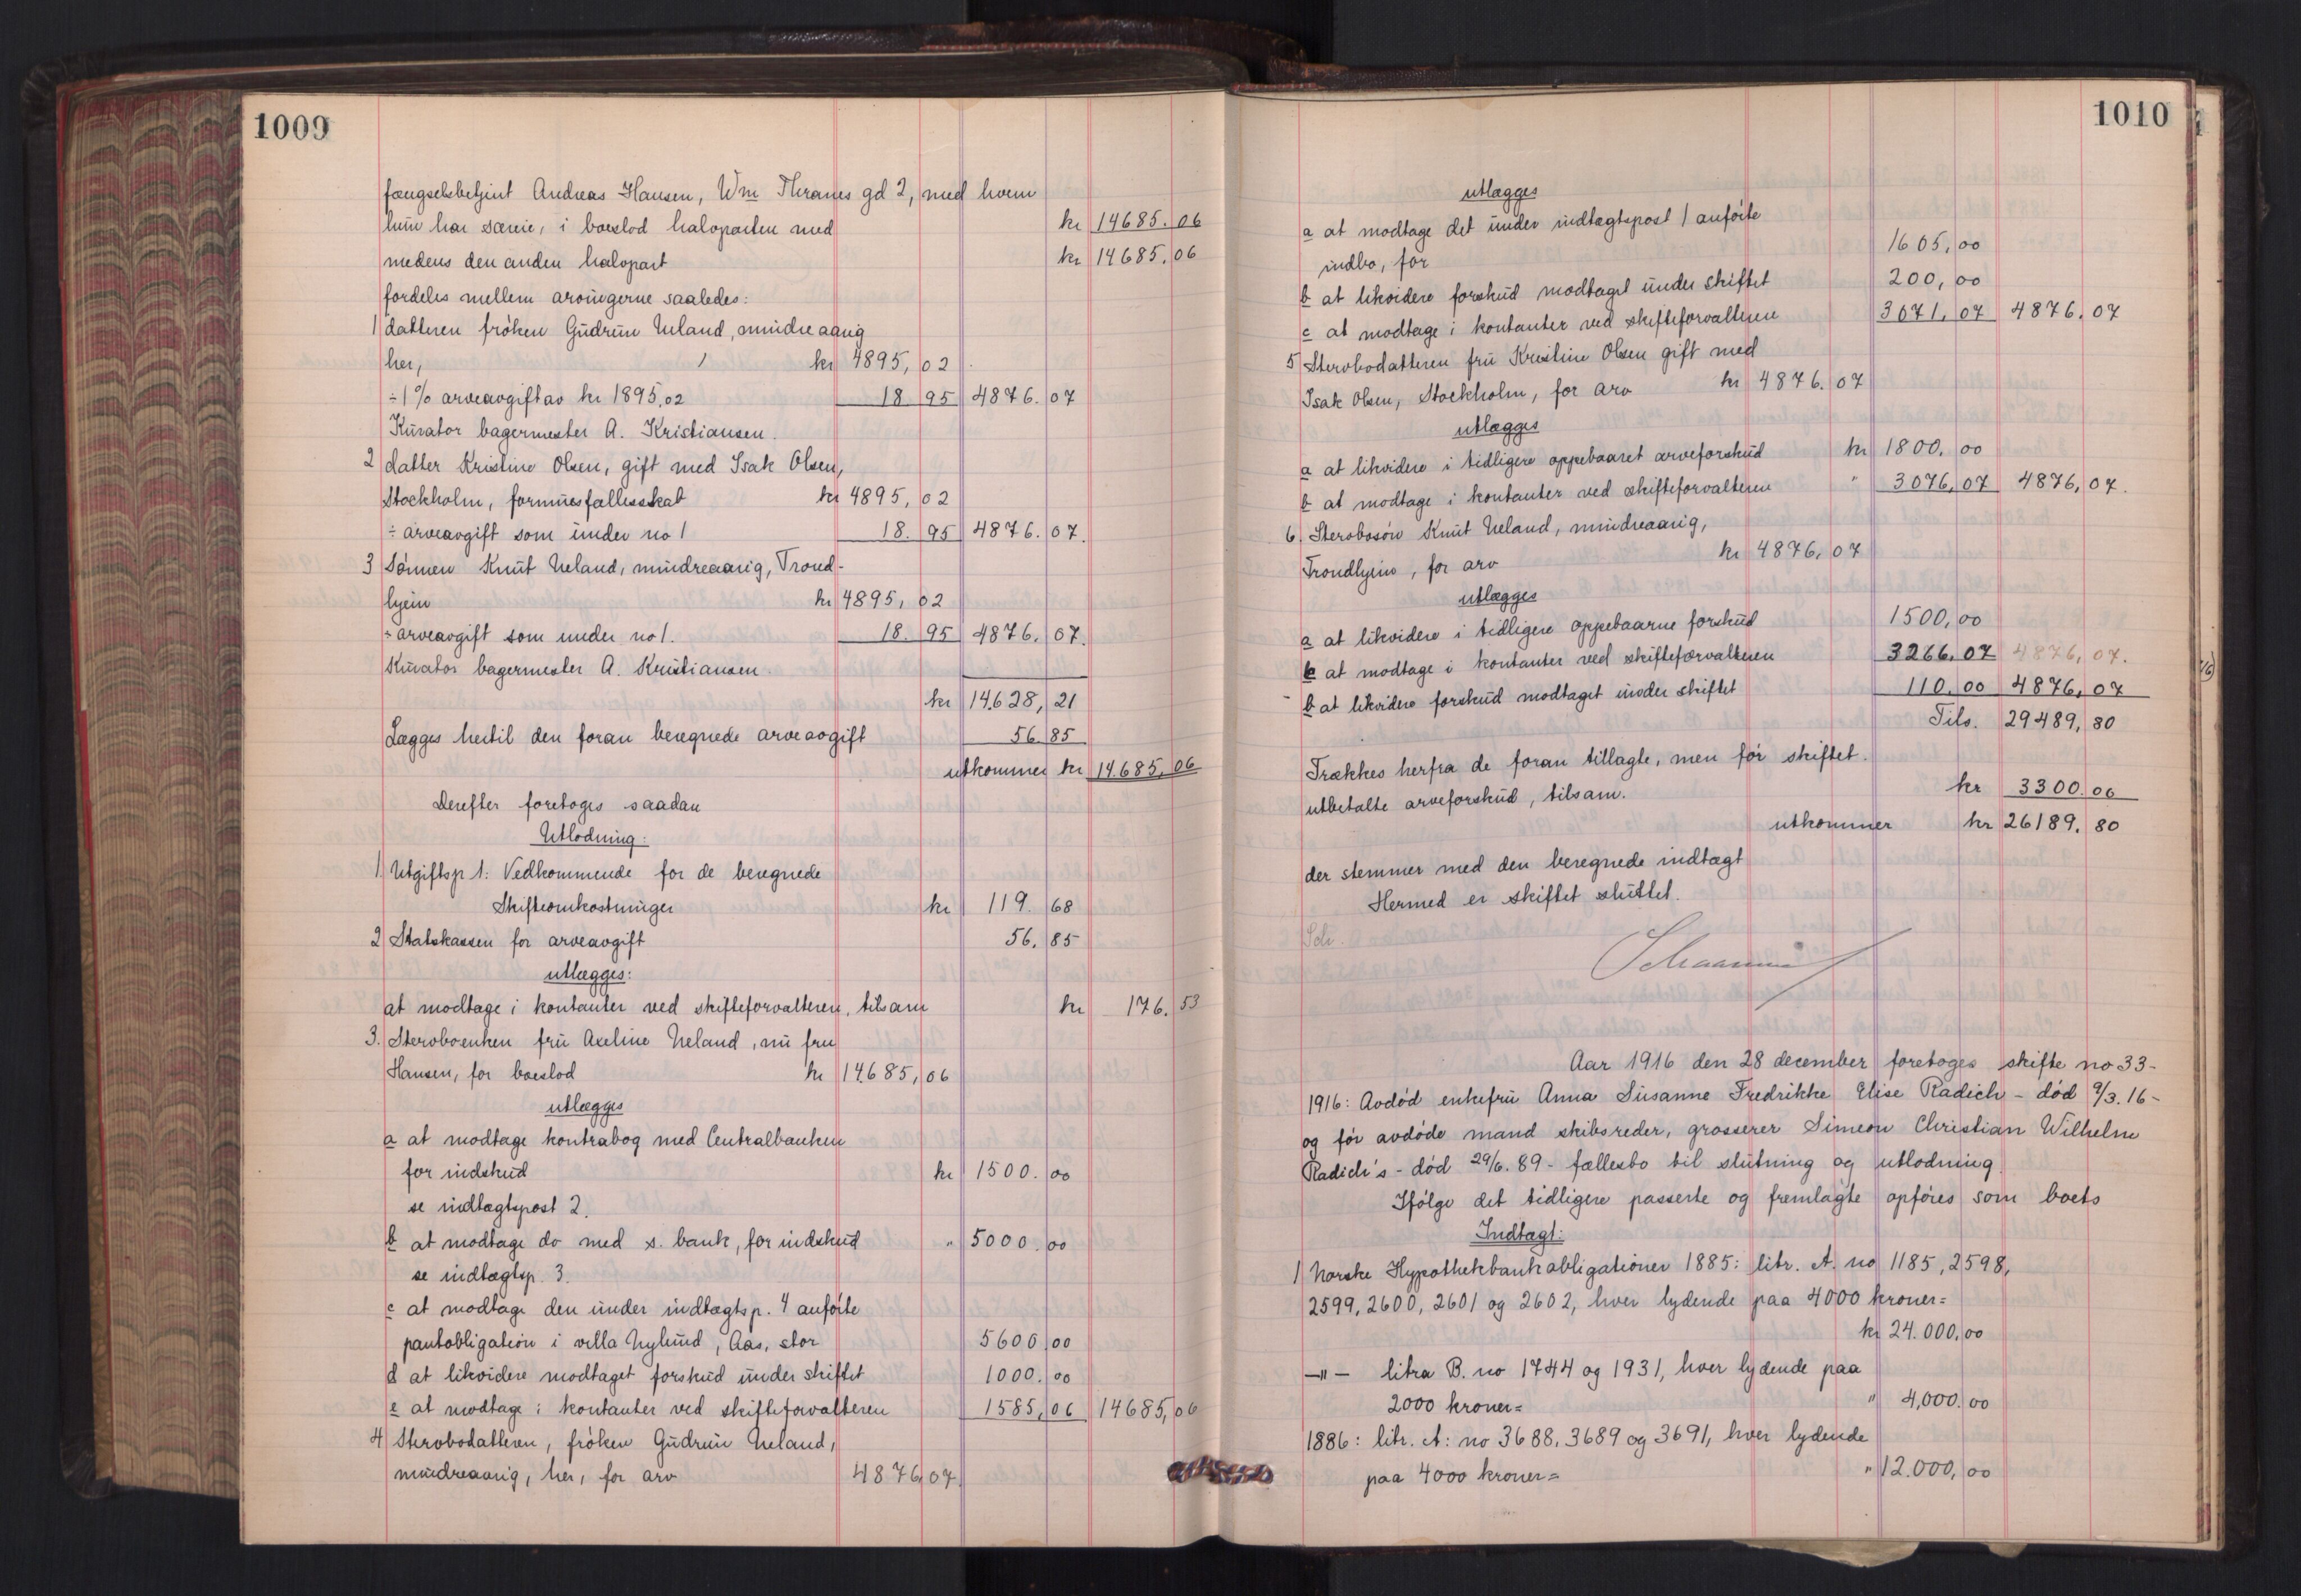 1009
fængselsbetjent Andreas Hansen, Wm Thranes gd 2, med hvem
hun har særeie, i boeslod halvparten med kr 14685.06
medens den anden halvpart kr 14685.06
fordeles mellem arvingerne saaledes:
1 datteren frøken Gudrun Ueland, mindreaarig
her, kr 4895,02
÷ 1% arveavgift av kr 1895,02 18.95 4876.07
Kurator bagermester A. Kristiansen.
2 datter Kristine Olsen, gift med Isak Olsen,
Stockholm, formuesfællesskab kr 4895,02
÷ arveavgift som under no 1 18.95 4876.07.
3 Sønnen Knut Ueland, mindreaarig, Trond-
hjem kr 4895,02
÷ arveavgift som under no 1. 18.95 4876.07.
Kurator bagermester A. Kristiansen.
kr 14.628,21
Lægges hertil den foran beregnede arveavgift 56.85
utkommer kr 14.685,06
Derefter foretoges saadan
Utlodning:
1 Utgiftsp 1: Vedkommende for de beregnede
Skifteomkostninger kr 119.68
2 Statskassen for arveavgift 56.85
utlægges:
at modtage i kontanter ved skifteforvalteren, tilsam kr 176.53
3. Stervboenken fru Axeline Ueland, nu fru
Hansen, for boeslod kr 14.685,06
utlægges
a at modtage kontrabog med Centralbanken
for indskud kr 1500.00
se indtægtspost 2.
b at modtage do med s. bank, for indskud " 5000.00
se indtægtsp. 3.
c at modtage den under indtægtsp. 4 anførte
pantobligation i villa Nylund, Aas, stor 5600,00
d at likvidere modtaget forskud under skiftet 1000.00
e at modtage i kontanter ved skifteforvalteren 1585,06 14685,06
4 Stervbodatteren, frøken Gudrun Ueland,
mindreaarig, her, for arv 4876,07.
1010
utlægges
a at modtage det under indtægtspost 1 anførte
indbo, for 1605,00
b at likvidere forskud modtaget under skiftet 200,00
c at modtage i kontanter ved skifteforvalteren 3071,07 4876,07
5 Stervbodatteren fru Kristine Olsen gift med
Isak Olsen, Stockholm, for arv kr 4876.07
utlægges
a at likvidere i tidligere oppebaaret arveforskud kr 1800.00
b at modtage i kontanter ved skifteforvalteren " 3076,07 4876,07.
6. Stervbosøn Knut Ueland, mindreaarig,
Trondhjem, for arv kr 4876,07
utlægges
a at likvidere i tidligere oppebaarne forskud 1500,00
c at modtage i kontanter ved skifteforvalteren 3266,07 4876,07.
b at likvidere forskud modtaget under skiftet 110.00 4876,07
Tils. 29489,80
Trækkes herfra de foran tillagte, men før skiftet
utbetalte arveforskud, tilsam. kr 3300.00
utkommer kr 26189.80
der stemmer med den beregnede indtægt
Hermed er skiftet sluttet.
Aar 1916 den 28 december foretoges skifte no 33-
1916: Avdød enkefru Anna Susanne Fredrikke Elise Radich - død 9/3.16-
og før avdøde mand skibsreder, grosserer Simeon Christian Wilhelm
Radich's - død 29/6.89 - fællesbo til slutning og utlodning.
Ifølge det tidligere passerte og fremlagte opføres som boets
Indtægt:
1 Norske Hypothekbankobligationer 1885: litr. A. no 1185, 2598,
2599, 2600, 2601 og 2602, hver lydende paa 4000 kroner=
kr 24.000,00
—"— litra B. no 1744 og 1931, hver lydende paa
2000 kroner= " 4,000.00
1886: litr. A: no 3688, 3689 og 3691, hver lydende
paa 4000 kroner= " 12.000,00